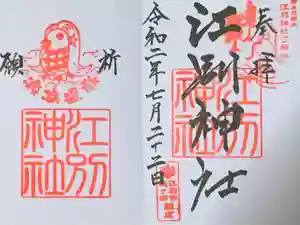 奉拝
江別神社
令和二年七月二十二日
江別神社
祈
願
江別神社